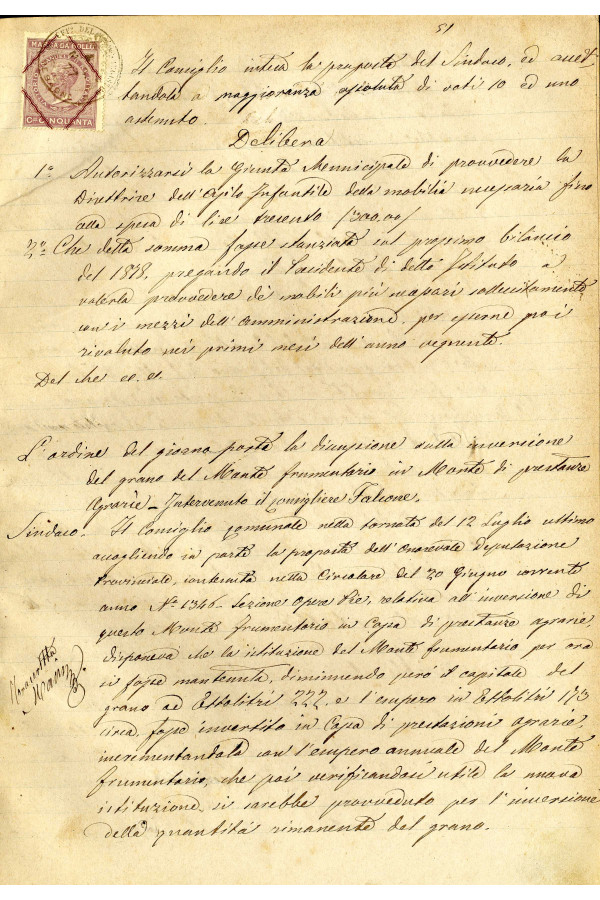 51
MARCA DA BOLLO
Cmi CINQUANTA
Il Consiglio intesa la proposta del Sindaco, ed accet
tandola a maggioranza assoluta di voti 10 ed uno
astenuto.
Delibera
1º Autorizzarsi la Giunta Municipale di provvedere la
Direttrice dell'Asilo Infantile della mobilia necessaria fino
alla spesa di lire trecento (300,00)
2º Che detta somma fosse stanziata sul prossimo bilancio
del 1878, pregando il Presidente di detto Istituto a
volerla provvedere dè mobili più necessari sollecitamente
con i mezzi dell'Amministrazione, per esserne poi
rivoluto nei primi mesi dell'anno vegnente.
Del che ec. ec.
L'ordine del giorno porta la discussione sulla inversione
del grano del Monte frumentario in Monte di prestanze
Agrarie - Intervenuto il Consigliere Falcone.
Sindaco. Il Consiglio Comunale nella tornata del 12 Luglio ultimo
accogliendo in parte la proposta dell'Onorevole Deputazione
Provinciale, contenuta nella Circolare del 20 Giugno corrente
anno Nº 1346 - Sezione Opere Pie, relativa all'inversione di
questo Monte frumentario in Cassa di prestanze agrarie,
disponeva che la istituzione del Monte frumentario per ora
si fosse mantenuta, diminuendo però il capitale del
grano ad Ettolitri 222, e l'empero in Ettolitri 173
circa, fosse invertito in Cassa di prestazioni agrarie,
incrementandola con l'empero annuale del Monte
frumentario, che poi verificandosi utile la nuova
istituzione, si sarebbe provveduto per l'inversione
della quantità rimanente del grano.